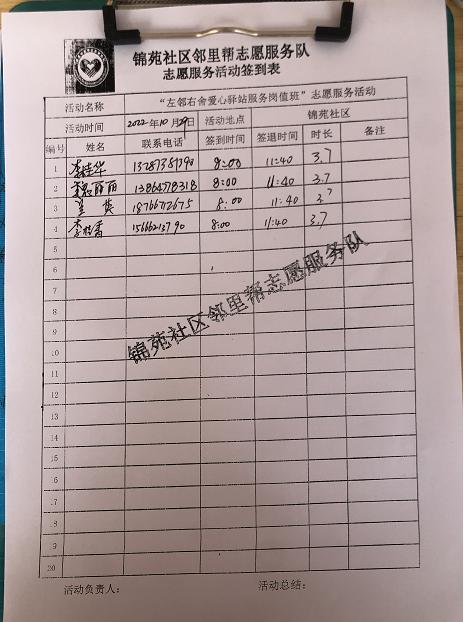 锦苑社区邻里帮志愿服务队
志愿服务活动签到表
活动名称 “左邻右舍爱心驿站服务岗值班”志愿服务活动
活动时间 2022年10月29日 活动地点 锦苑社区
编号 姓名 联系电话 签到时间 签退时间 时长 备注
1 李桂华 8:00 11:40 3.7
2 丽丽 13864578318 8:00 11:40 3.7
3 英 18766712675 8:00 11:40 3.7
4 李 8:00 11:40 3.7
5
6
7
8
锦苑社区邻里帮志愿服务队
9
10
11
12
13
14
15
16
17
18
19
20
活动负责人： 活动总结：